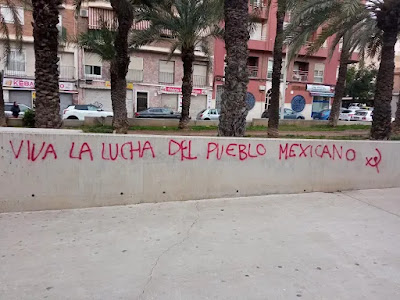 VIVA LA LUCHA DEL PUEBLO MEXICANO